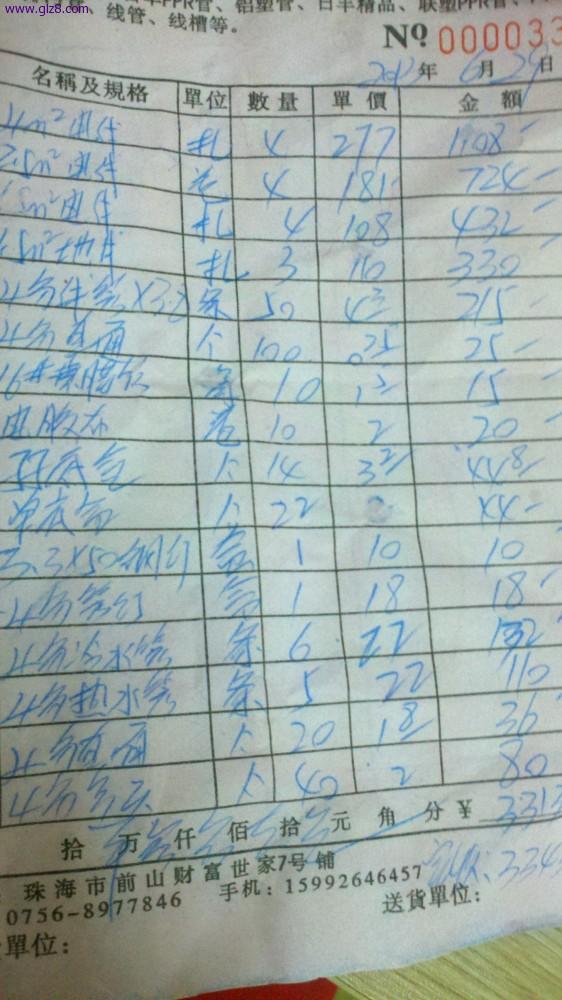 www.glz8.com
PPR管、铝塑管、日丰精品、联塑PPR管、
线管、线槽等。
№ 000033
2012年6月29日
名稱及規格 單位 數量 單價 金額
4m² 扎 4 277 1108-
2.5m² 卷 4 181 724-
扎 4 108 432-
扎 3 110 330-
4分 50 4³ 215-
4分直通 个 100 0.25 25-
16# 10 1⁵ 15-
电胶布 卷 10 2 20-
双底盒 个 14 3² 44⁸
单底盒 个 22 44-
3×50钢钉 盒 1 10 10-
4分管钉 盒 1 18 18-
4分冷水管 条 6 22 132-
4分热水管 条 5 22 110
4分直通 个 20 1⁸ 36-
4分 个 40 2 80
拾 万 仟 佰 拾 元 角 分 ¥ 331
珠海市前山财富世家7号铺
0756-8977846 手机：15992646457
334
送貨單位：
單位：